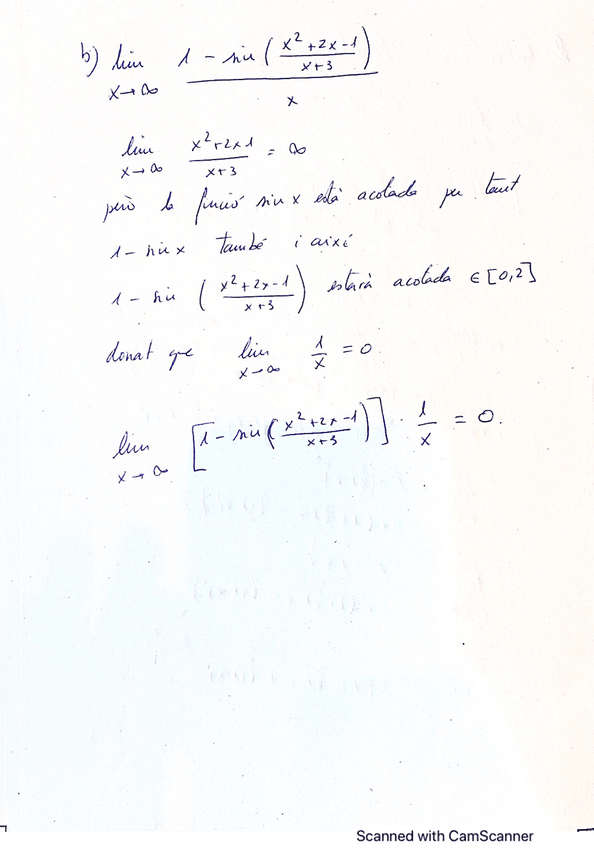 b) lim x→∞ (1 - sin((x²+2x-1)/(x+3)))/x
lim x→∞ (x²+2x-1)/(x+3) = ∞
però la funció sin x està acotada per tant
1 - sin x també i així
1 - sin ((x²+2x-1)/(x+3)) estarà acotada ∈ [0,2]
donat que lim x→∞ 1/x = 0
lim x→∞ [1 - sin((x²+2x-1)/(x+3))] · 1/x = 0.
Scanned with CamScanner